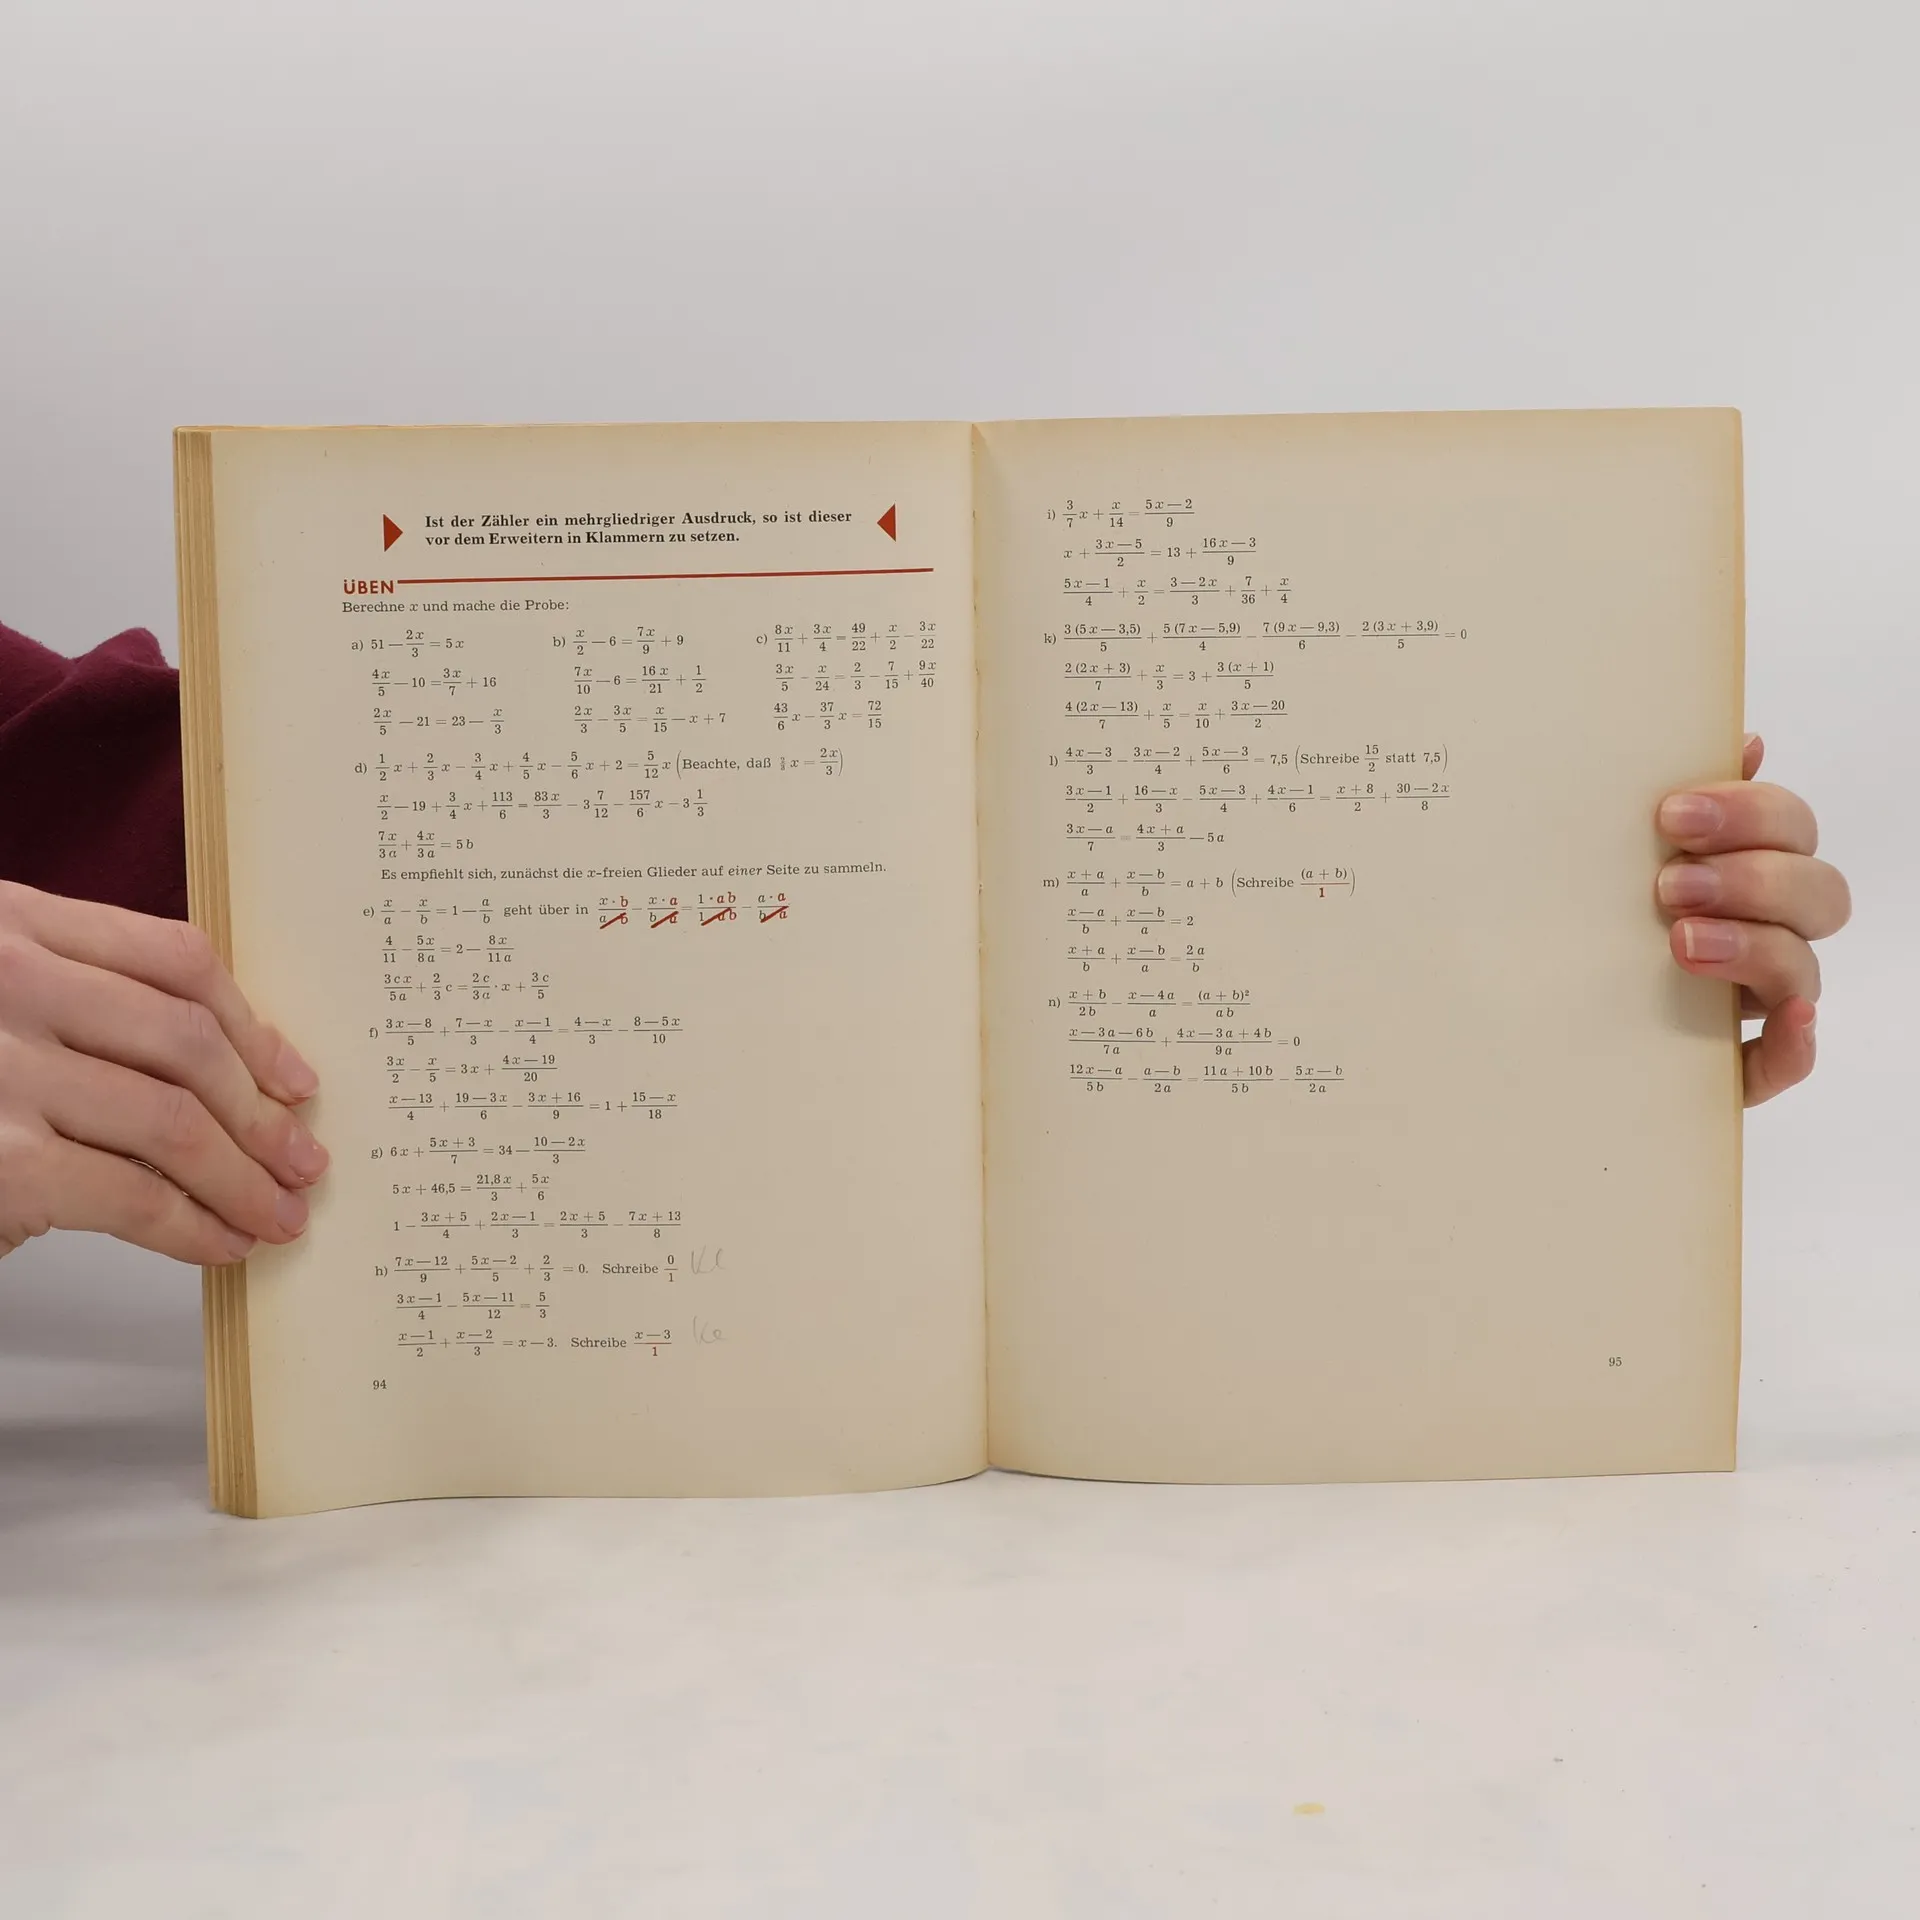 Ist der Zähler ein mehrgliedriger Ausdruck, so ist dieser
vor dem Erweitern in Klammern zu setzen.
ÜBEN
Berechne x und mache die Probe:
a) 51 — 2x/3 = 5x
4x/5 — 10 = 3x/7 + 16
2x/5 — 21 = 23 — x/3
b) x/2 — 6 = 7x/9 + 9
7x/10 — 6 = 16x/21 + 1/2
2x/3 — 3x/5 = x/15 — x + 7
c) 8x/11 + 3x/4 = 49/22 + x/2 — 3x/22
3x/5 — x/24 = 2/3 — 7/15 + 9x/40
43/6 x — 37/3 x = 72/15
d) 1/2 x + 2/3 x — 3/4 x + 4/5 x — 5/6 x + 2 = 5/12 x (Beachte, daß 2/3 x = 2x/3)
x/2 — 19 + 3/4 x + 113/6 = 83x/3 — 3 7/12 — 157/6 x — 3 1/3
7x/3a + 4x/3a = 5b
Es empfiehlt sich, zunächst die x-freien Glieder auf einer Seite zu sammeln.
e) x/a — x/b = 1 — a/b geht über in x·b/a·b — x·a/b·a = 1·ab/1·ab — a·a/b·a
4/11 — 5x/8a = 2 — 8x/11a
3cx/5a + 2/3 c = 2c/3a · x + 3c/5
f) 3x — 8/5 + 7 — x/3 — x — 1/4 = 4 — x/3 — 8 — 5x/10
3x/2 — x/5 = 3x + 4x — 19/20
x — 13/4 + 19 — 3x/6 — 3x + 16/9 = 1 + 15 — x/18
g) 6x + 5x + 3/7 = 34 — 10 — 2x/3
5x + 46,5 = 21,8x/3 + 5x/6
1 — 3x + 5/4 + 2x — 1/3 = 2x + 5/3 — 7x + 13/8
h) 7x — 12/9 + 5x — 2/5 + 2/3 = 0. Schreibe 0/1
3x — 1/4 — 5x — 11/12 = 5/3
x — 1/2 + x — 2/3 = x — 3. Schreibe x — 3/1
94
i) 3/7 x + x/14 = 5x — 2/9
x + 3x — 5/2 = 13 + 16x — 3/9
5x — 1/4 + x/2 = 3 — 2x/3 + 7/36 + x/4
k) 3 (5x — 3,5)/5 + 5 (7x — 5,9)/4 — 7 (9x — 9,3)/6 — 2 (3x + 3,9)/5 = 0
2 (2x + 3)/7 + x/3 = 3 + 3 (x + 1)/5
4 (2x — 13)/7 + x/5 = x/10 + 3x — 20/2
l) 4x — 3/3 — 3x — 2/4 + 5x — 3/6 = 7,5 (Schreibe 15/2 statt 7,5)
3x — 1/2 + 16 — x/3 — 5x — 3/4 + 4x — 1/6 = x + 8/2 + 30 — 2x/8
3x — a/7 = 4x + a/3 — 5a
m) x + a/a + x — b/b = a + b (Schreibe (a + b)/1)
x — a/b + x — b/a = 2
x + a/b + x — b/a = 2a/b
n) x + b/2b — x — 4a/a = (a + b)²/ab
x — 3a — 6b/7a + 4x — 3a + 4b/9a = 0
12x — a/5b — a — b/2a = 11a + 10b/5b — 5x — b/2a
95